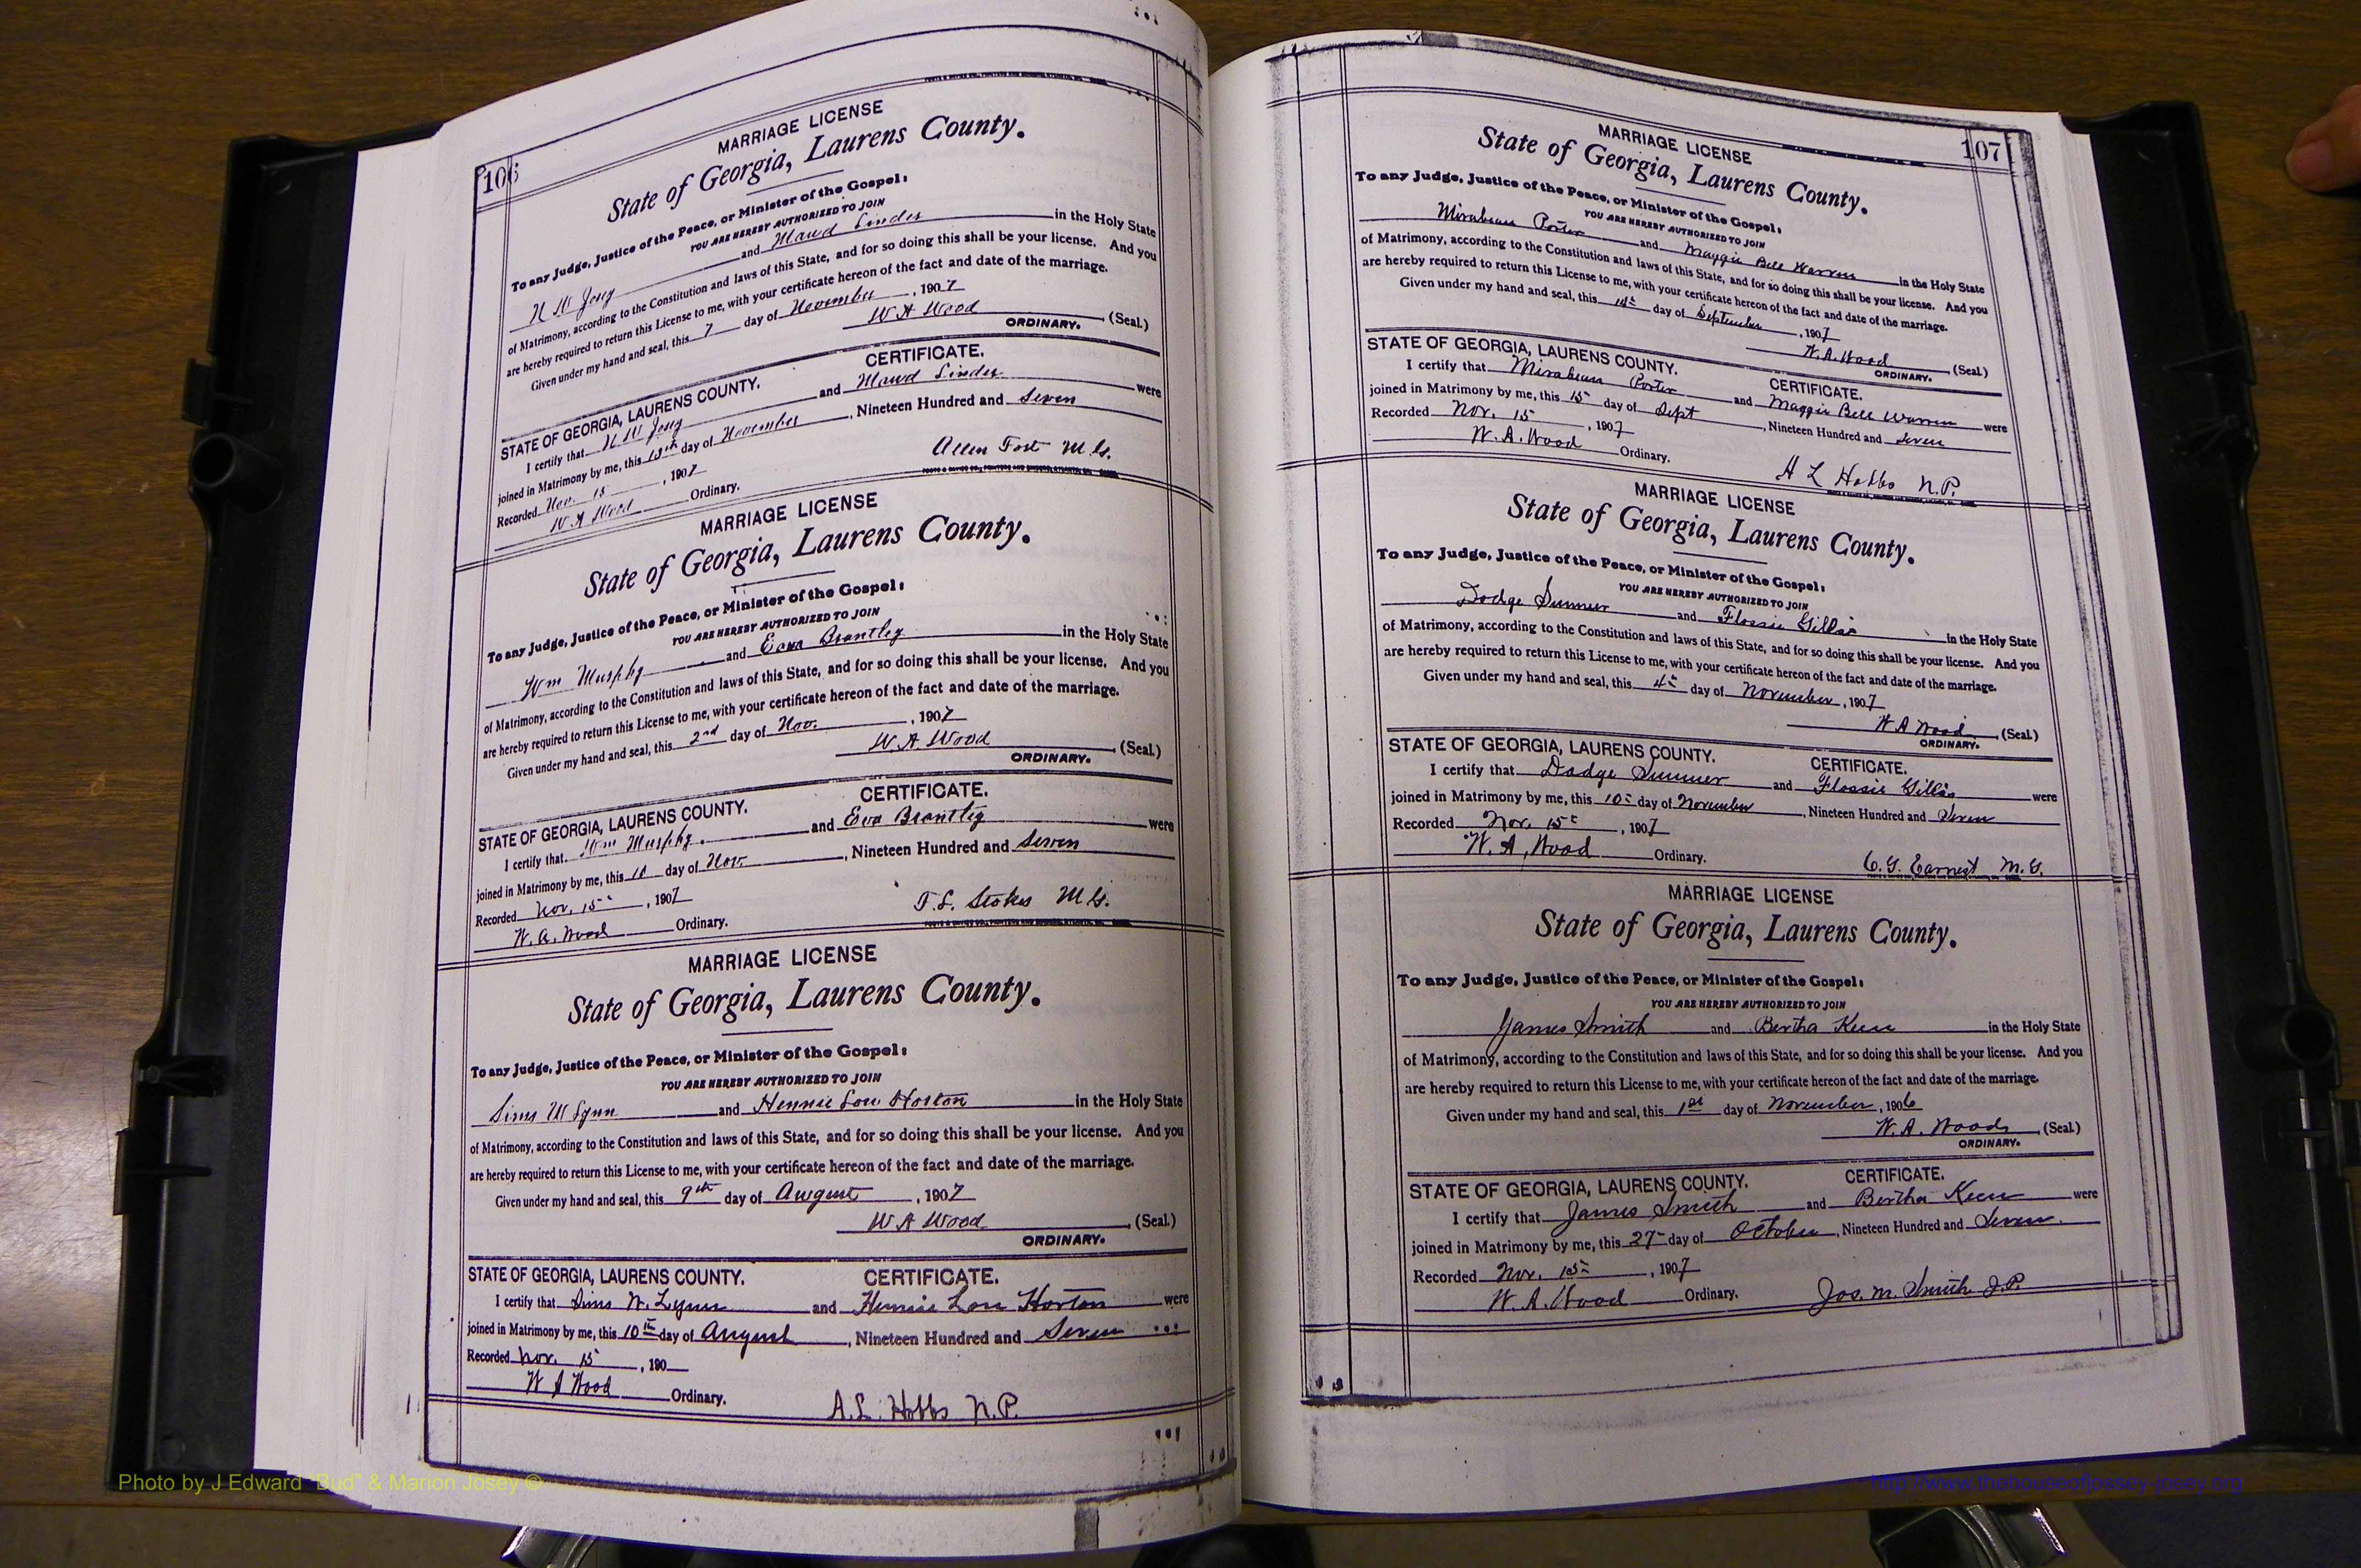 106
MARRIAGE LICENSE
State of Georgia, Laurens County.
To any Judge, Justice of the Peace, or Minister of the Gospel:
YOU ARE HEREBY AUTHORIZED TO JOIN
and Maud Linder in the Holy State
of Matrimony, according to the Constitution and laws of this State, and for so doing this shall be your license. And you
are hereby required to return this License to me, with your certificate hereon of the fact and date of the marriage.
Given under my hand and seal, this 7 day of November, 1907
W A Wood (Seal.)
ORDINARY.
STATE OF GEORGIA, LAURENS COUNTY. CERTIFICATE.
I certify that and Maud Linder were
joined in Matrimony by me, this day of November, Nineteen Hundred and Seven
Recorded Nov. 15, 1907
W A Wood Ordinary.
Allen Fort M.G.
MARRIAGE LICENSE
State of Georgia, Laurens County.
To any Judge, Justice of the Peace, or Minister of the Gospel:
YOU ARE HEREBY AUTHORIZED TO JOIN
Wm Murphy and Eva Brantley in the Holy State
of Matrimony, according to the Constitution and laws of this State, and for so doing this shall be your license. And you
are hereby required to return this License to me, with your certificate hereon of the fact and date of the marriage.
Given under my hand and seal, this 2nd day of Nov., 1907
W. A. Wood (Seal.)
ORDINARY.
STATE OF GEORGIA, LAURENS COUNTY. CERTIFICATE.
I certify that Wm Murphy and Eva Brantley were
joined in Matrimony by me, this 10 day of Nov, Nineteen Hundred and Seven
Recorded Nov. 15th, 1907
W. A. Wood Ordinary.
T. S. Stokes M.G.
MARRIAGE LICENSE
State of Georgia, Laurens County.
To any Judge, Justice of the Peace, or Minister of the Gospel:
YOU ARE HEREBY AUTHORIZED TO JOIN
Sims W Lynn and Hennie Lou Horton in the Holy State
of Matrimony, according to the Constitution and laws of this State, and for so doing this shall be your license. And you
are hereby required to return this License to me, with your certificate hereon of the fact and date of the marriage.
Given under my hand and seal, this 9th day of August, 1907
W A Wood (Seal.)
ORDINARY.
STATE OF GEORGIA, LAURENS COUNTY. CERTIFICATE.
I certify that Sims W. Lynn and Hennie Lou Horton were
joined in Matrimony by me, this 10th day of August, Nineteen Hundred and Seven
Recorded Nov. 15, 190
W A Wood Ordinary.
A. L. Hobbs N.P.
107
MARRIAGE LICENSE
State of Georgia, Laurens County.
To any Judge, Justice of the Peace, or Minister of the Gospel:
YOU ARE HEREBY AUTHORIZED TO JOIN
Mirabeau Porter and Maggie Bell Warren in the Holy State
of Matrimony, according to the Constitution and laws of this State, and for so doing this shall be your license. And you
are hereby required to return this License to me, with your certificate hereon of the fact and date of the marriage.
Given under my hand and seal, this 14th day of September, 1907
W. A. Wood (Seal.)
ORDINARY.
STATE OF GEORGIA, LAURENS COUNTY. CERTIFICATE.
I certify that Mirabeau Porter and Maggie Bell Warren were
joined in Matrimony by me, this 15 day of Sept, Nineteen Hundred and Seven
Recorded Nov. 15, 1907
W. A. Wood Ordinary.
A L Hobbs N.P.
MARRIAGE LICENSE
State of Georgia, Laurens County.
To any Judge, Justice of the Peace, or Minister of the Gospel:
YOU ARE HEREBY AUTHORIZED TO JOIN
Dodge Sumner and Flossie Gillis in the Holy State
of Matrimony, according to the Constitution and laws of this State, and for so doing this shall be your license. And you
are hereby required to return this License to me, with your certificate hereon of the fact and date of the marriage.
Given under my hand and seal, this 4th day of November, 1907
W A Wood (Seal.)
ORDINARY.
STATE OF GEORGIA, LAURENS COUNTY. CERTIFICATE.
I certify that Dodge Sumner and Flossie Gillis were
joined in Matrimony by me, this 10th day of November, Nineteen Hundred and Seven
Recorded Nov. 15th, 1907
W. A. Wood Ordinary.
C. G. Earnest M.G.
MARRIAGE LICENSE
State of Georgia, Laurens County.
To any Judge, Justice of the Peace, or Minister of the Gospel:
YOU ARE HEREBY AUTHORIZED TO JOIN
James Smith and Bertha Keen in the Holy State
of Matrimony, according to the Constitution and laws of this State, and for so doing this shall be your license. And you
are hereby required to return this License to me, with your certificate hereon of the fact and date of the marriage.
Given under my hand and seal, this 1st day of November, 1906
W. A. Wood (Seal.)
ORDINARY.
STATE OF GEORGIA, LAURENS COUNTY. CERTIFICATE.
I certify that James Smith and Bertha Keen were
joined in Matrimony by me, this 27th day of October, Nineteen Hundred and Seven.
Recorded Nov. 15th, 1907
W. A. Wood Ordinary.
Jos. M. Smith J.P.
Photo by J Edward "Bud" & Marion Josey ©
http://www.thehouseofjossey-josey.org